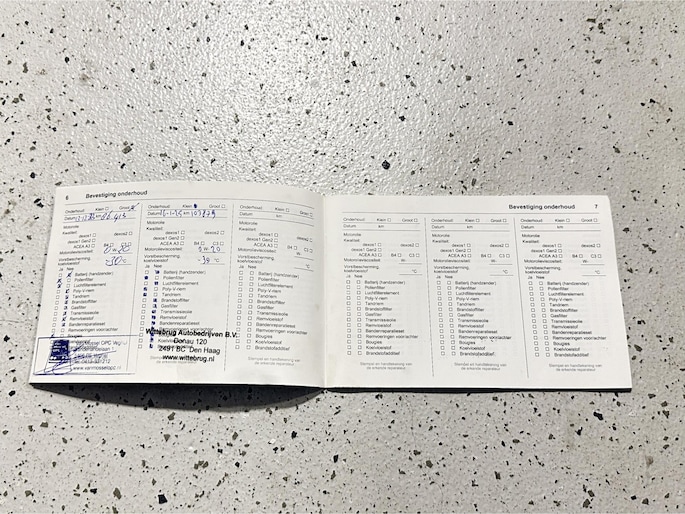 6 Bevestiging onderhoud
Onderhoud: Klein Groot
Datum km
Motorolie
Kwaliteit:
dexos1 dexos2
dexos1 Gen2
ACEA A3 B4 C3
Motorolieviscositeit: 0 W 20
Vorstbescherming
koelvloeistof: -30 °C
Ja Nee
Batterij (handzender)
Pollenfilter
Luchtfilterelement
Poly V-riem
Tandriem
Brandstoffilter
Gasfilter
Transmissieolie
Remvloeistof
Bandenreparatieset
Remvoeringen voor/achter
www.vanmosselopc.nl
Onderhoud: Klein Groot
Datum km 103779
Motorolie
Kwaliteit:
dexos1 dexos2
dexos1 Gen2
ACEA A3 B4 C3
Motorolieviscositeit: W 20
Vorstbescherming
koelvloeistof: °C
Ja Nee
Batterij (handzender)
Pollenfilter
Luchtfilterelement
Poly V-riem
Tandriem
Brandstoffilter
Gasfilter
Transmissieolie
Remvloeistof
Bandenreparatieset
Wittebrug Autobedrijven B.V.
Donau 120
2491 BC Den Haag
www.wittebrug.nl
Onderhoud: Klein Groot
Datum km
Motorolie
Kwaliteit:
dexos1 dexos2
dexos1 Gen2
ACEA A3 B4 C3
Motorolieviscositeit: W-
Vorstbescherming
koelvloeistof: °C
Ja Nee
Batterij (handzender)
Pollenfilter
Luchtfilterelement
Poly V-riem
Tandriem
Brandstoffilter
Gasfilter
Transmissieolie
Remvloeistof
Bandenreparatieset
Remvoeringen voor/achter
Bougies
Koelvloeistof
Brandstofadditief
Stempel en handtekening van
de erkende reparateur
Bevestiging onderhoud 7
Onderhoud: Klein Groot
Datum km
Motorolie
Kwaliteit:
dexos1 dexos2
dexos1 Gen2
ACEA A3 B4 C3
Motorolieviscositeit: W-
Vorstbescherming
koelvloeistof: °C
Ja Nee
Batterij (handzender)
Pollenfilter
Luchtfilterelement
Poly V-riem
Tandriem
Brandstoffilter
Gasfilter
Transmissieolie
Remvloeistof
Bandenreparatieset
Remvoeringen voor/achter
Bougies
Koelvloeistof
Brandstofadditief
Stempel en handtekening van
de erkende reparateur
Onderhoud: Klein Groot
Datum km
Motorolie
Kwaliteit:
dexos1 dexos2
dexos1 Gen2
ACEA A3 B4 C3
Motorolieviscositeit: W-
Vorstbescherming
koelvloeistof: °C
Ja Nee
Batterij (handzender)
Pollenfilter
Luchtfilterelement
Poly V-riem
Tandriem
Brandstoffilter
Gasfilter
Transmissieolie
Remvloeistof
Bandenreparatieset
Remvoeringen voor/achter
Bougies
Koelvloeistof
Brandstofadditief
Stempel en handtekening van
de erkende reparateur
Onderhoud: Klein Groot
Datum km
Motorolie
Kwaliteit:
dexos1 dexos2
dexos1 Gen2
ACEA A3 B4 C3
Motorolieviscositeit: W-
Vorstbescherming
koelvloeistof: °C
Ja Nee
Batterij (handzender)
Pollenfilter
Luchtfilterelement
Poly V-riem
Tandriem
Brandstoffilter
Gasfilter
Transmissieolie
Remvloeistof
Bandenreparatieset
Remvoeringen voor/achter
Bougies
Koelvloeistof
Brandstofadditief
Stempel en handtekening van
de erkende reparateur